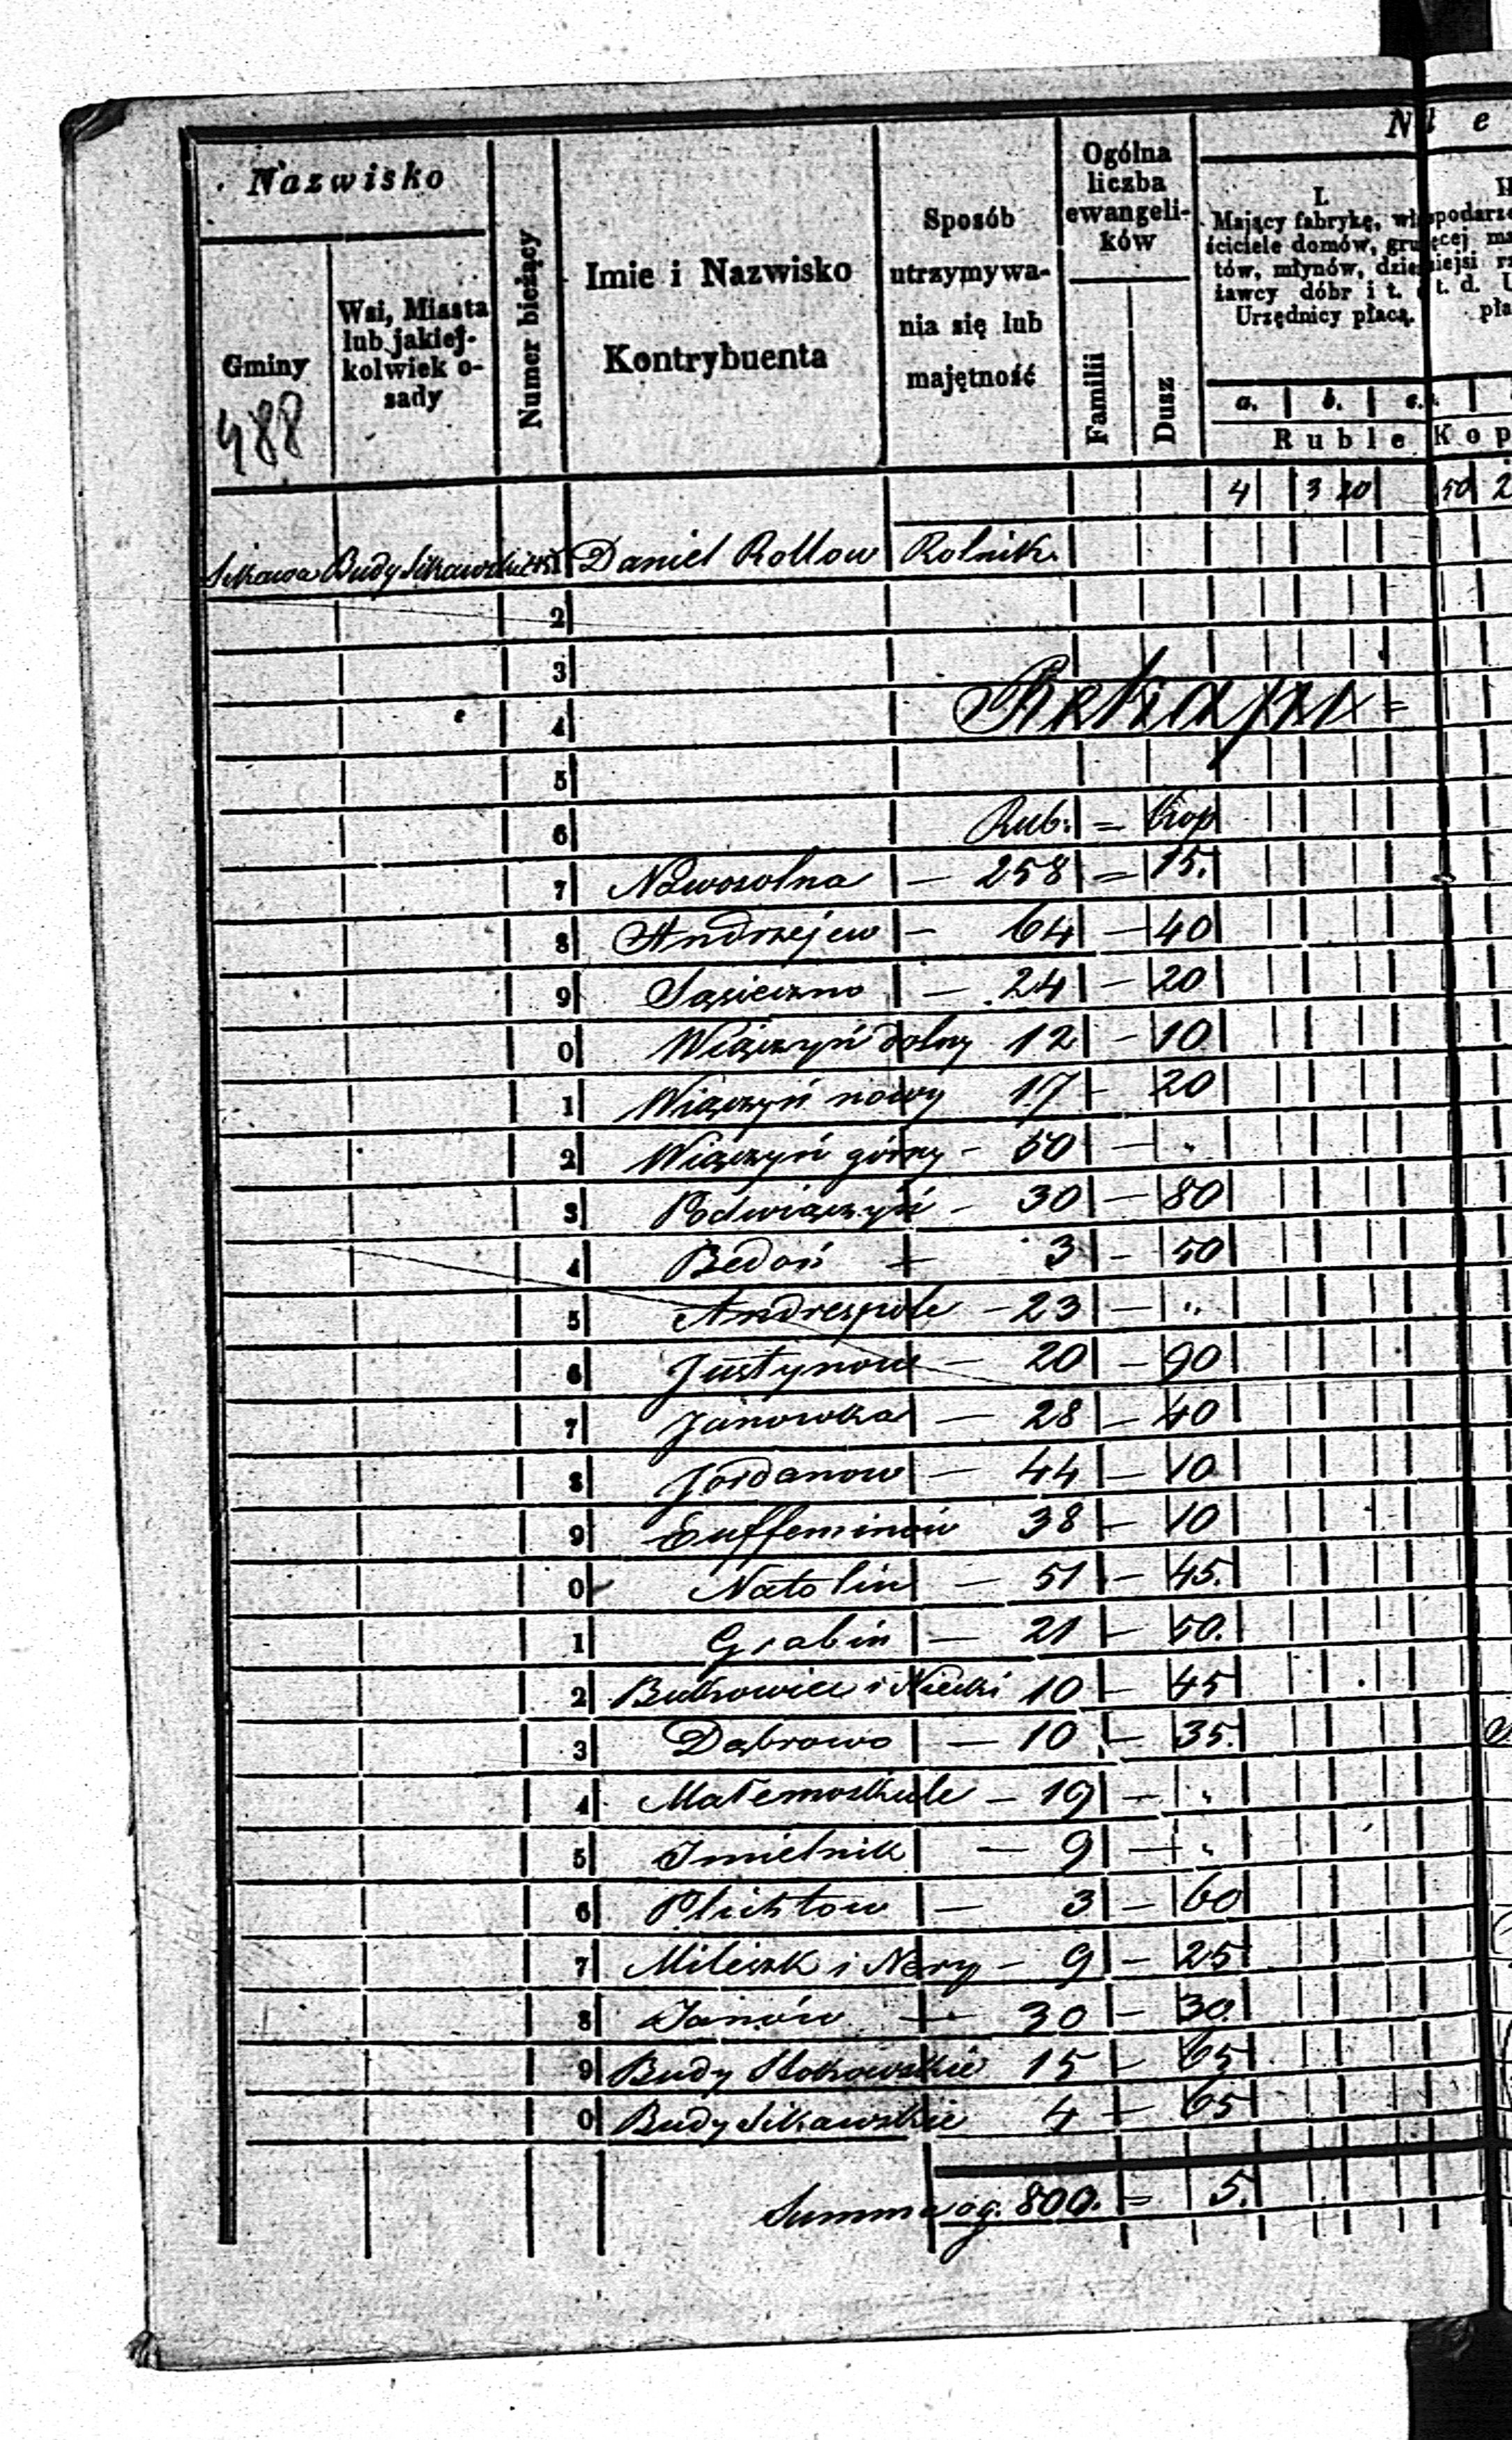 Nazwisko
Gminy
488
Wsi, Miasta
lub jakiej-
kolwiek o-
sady
Numer bieżący
Imie i Nazwisko
Kontrybuenta
Sposób
utrzymywa-
nia się lub
majętność
Ogólna
liczba
ewangeli-
ków
Familii
Dusz
N e
I.
Mający fabrykę, wł podarz
ściciele domów, gru ęcej ma
tów, młynów, dzie niejsi
żawcy dóbr i t. t. d. U
Urzędnicy płacą. pła
a. b. c.
Ruble Kop
4 3 20 50 2
Sikawa Budy Sikawskie 1 Daniel Rollow Rolnik.
2
3
4
5
6 Rub. = Kop
7 Nowosolna — 258 = 15.
8 Andrzejew — 64 — 40
9 Sąsieczno — 24 — 20
0 Wiączyń dolny 12 — 10
1 Wiączyń nowy 17 — 20
2 Wiączyń górny — 50 — "
3 Podwiączyń — 30 — 80
4 Bedoń — 3 — 50
5 Andrespole — 23 — "
6 Justynow — 20 — 90
7 Janowka — 28 — 40
8 Jordanow — 44 — 10
9 Euffeminów 38 — 10
0 Natolin — 51 — 45.
1 Grabin — 21 — 50.
2 Butkowice i Niecki 10 — 45
3 Dąbrowo — 10 — 35.
4 Małemoskule — 19 — "
5 Imielnik — 9 — "
6 Plichtow — 3 — 60
7 Mileszk i Nery — 9 — 25
8 Janów — 30 — 30
9 Budy Stokowskie 15 — 65
0 Budy Sikawskie 4 — 65
Summa og. 800. = 5.